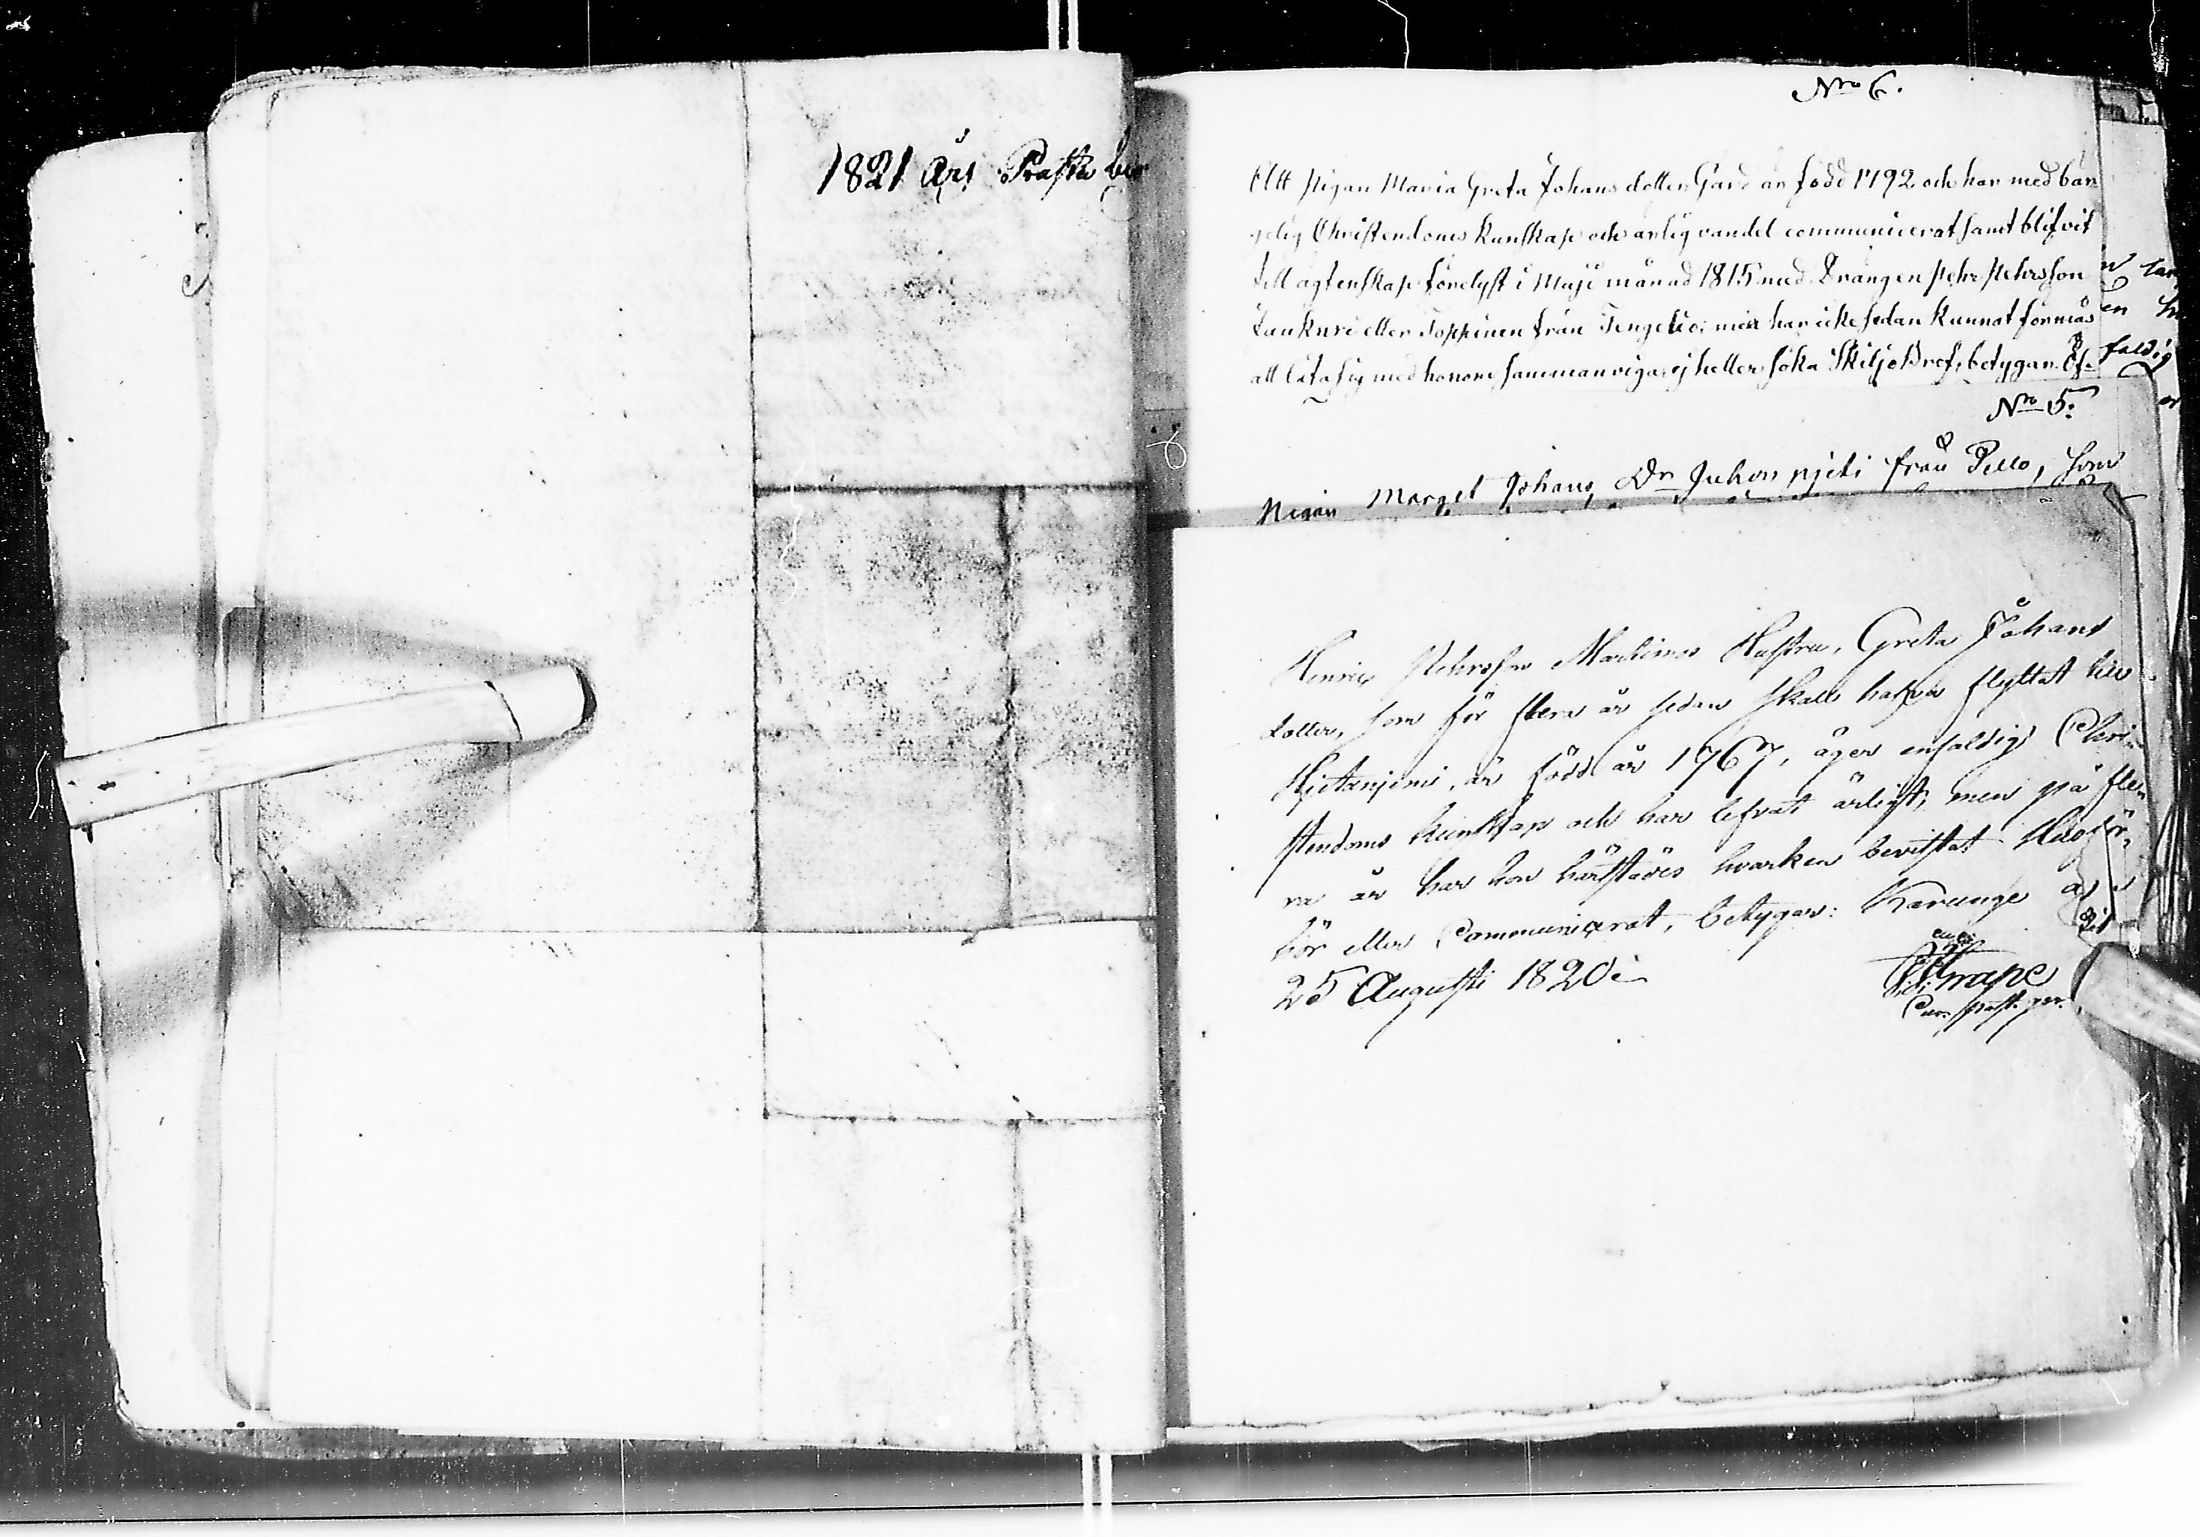 1821 års Prästa be
Nro 6.
Att Pigan Maria Greta Johans dotter Gard är född 1792 och har med bär
gelig Christendoms kunskap och ärlig vandel communicerat samt blifvit
till ägtenskap förelyst i Maji månad 1815 med Drängen Pehr Pehrsson
Laukuri eller Toppinen från Tengeliö; men har icke sedan kunnat förmås
att låta sig med honom sammanviga, ej heller söka Skiljobref, betygar. Öf-
faldig
en
Nro 5:
Pigan Marget Johans Dr Juhonpjeti från Pello, som
Henric Pehrsson Martimos Hustru, Greta Johans
dotter, som för flera år sedan skall hafva flyttat till
Hjetanjemi, är född år 1767, äger enfaldig Chri-
stendoms kunskap och har lefvat ärligt, men på fle-
ra år har hon härstädes hvarken bevistat Husför-
hör eller Communicerat, betygar: Karunge
25 Augusti 1820:
Past. gor.